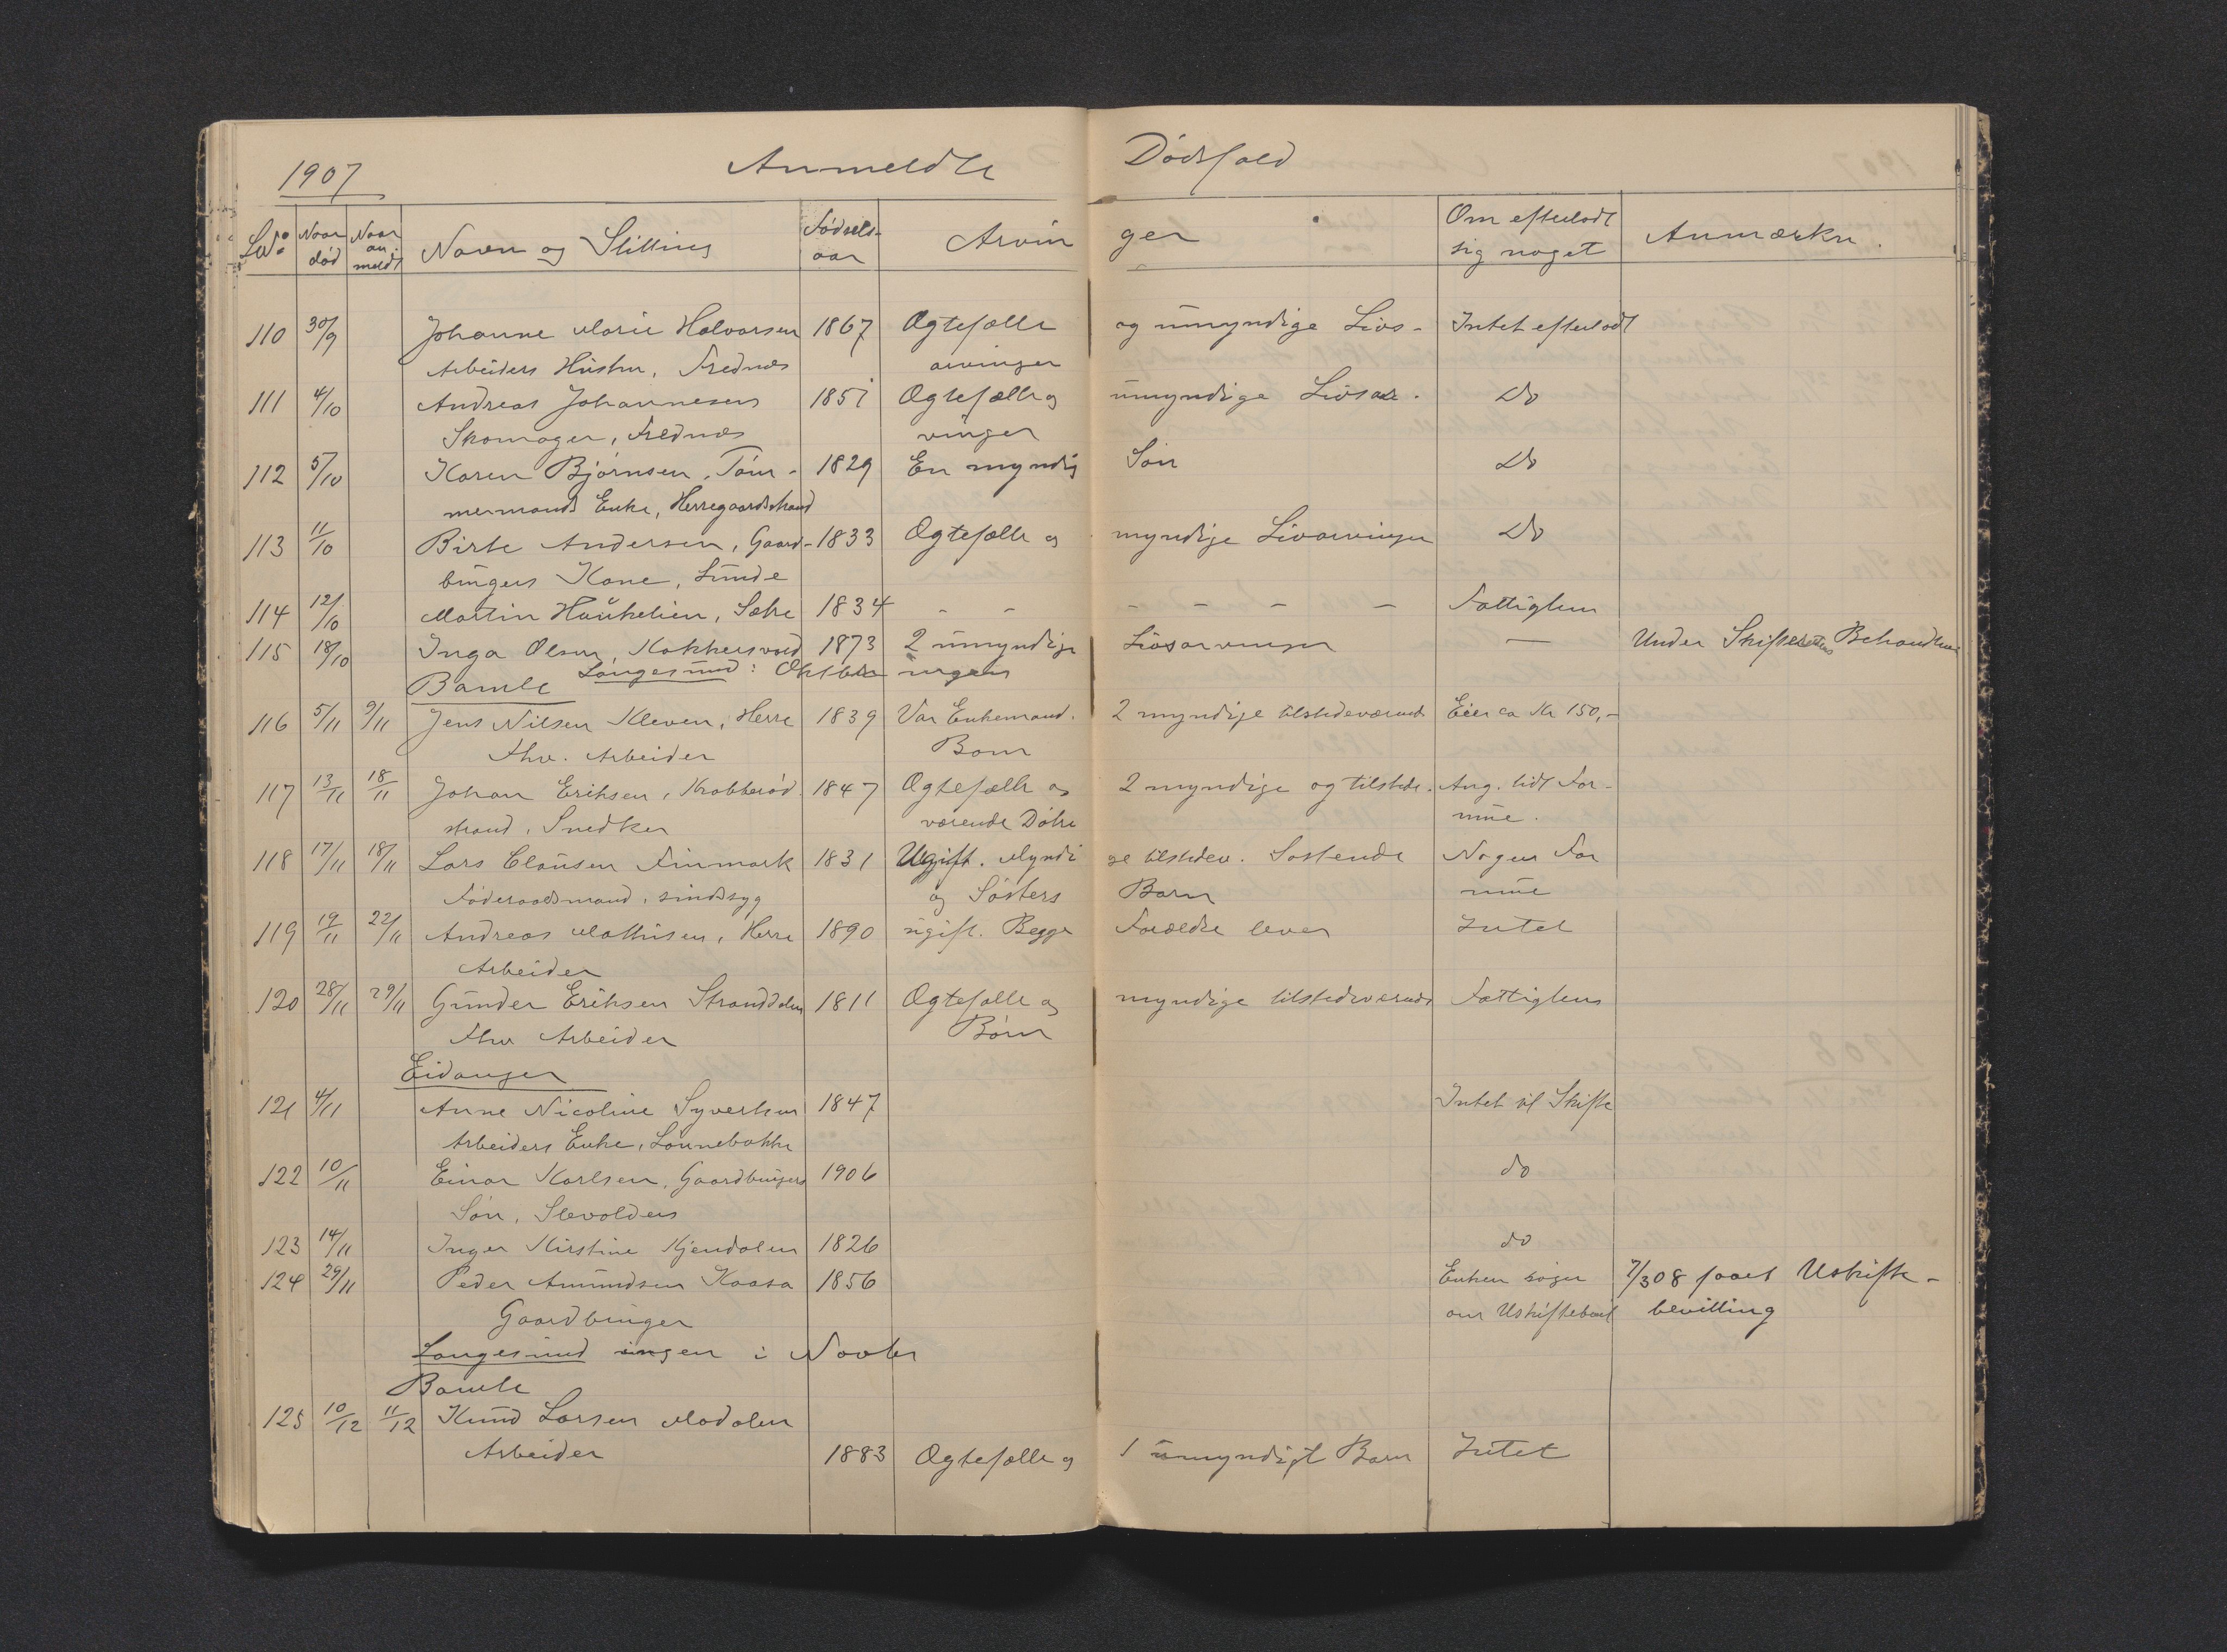 1907 Anmeldte Dødsfald
Lod: Naar død Naar anmeldt Navn og Stilling Fødsels-aar Arvinger Om efterladt sig noget Anmærkn.
110 30/9 Johanne Marie Halvorsen 1867 Ægtefælle og umyndige Livs- Intet efterladt
Arbeiders Hustru, Frednes arvinger
111 4/10 Andreas Johannesen 1851 Ægtefælle og umyndige Livsar. Do
Skomager, Frednes vinger
112 5/10 Karen Bjørnsen, Tøm- 1829 En myndig Søn Do
mermands Enke, Herregaardstrand
113 11/10 Birte Andersen, Gaard- 1833 Ægtefælle og myndige Livarvinger Do
brugers Kone, Lunde
114 12/10 Martin Haukelien, Sætre 1834 - - - - - - Fattiglem
115 18/10 Inga Olsen, Kokkersvold 1873 2 umyndige Livsarvinger — Under Skifterettens Behandling
Langesund: Oktober ingen
Bamle
116 5/11 9/11 Jens Nilsen Kleven, Herre 1839 Var Enkemand. 2 myndige tilstedeværende Eier ca Kr 150,-
Fhv. Arbeider Børn
117 13/11 18/11 Johan Eriksen, Krabberød- 1847 Ægtefælle og 2 myndige og tilstede. Ang. lidt For-
strand, Snedker værende Døtre mue.
118 17/11 18/11 Lars Clausen Finmark 1831 Ugift. Myndi ge tilstedev. Søskende Nogen For
Føderaadsmand, sindssyg og Søsters Børn mue
119 19/11 22/11 Andreas Mathisen, Herre 1890 ugift. Begge Forældre lever Intet
Arbeider
120 28/11 29/11 Gunder Eriksen Stranddalen 1811 Ægtefælle og myndige tilstedeværende Fattiglem
Fhv Arbeider Børn
Eidanger
121 4/11 Anne Nicoline Syvertsen 1847 Intet til Skifte
Arbeiders Enke, Lønnebakke
122 10/11 Einar Karlsen, Gaardbrugers 1906 do
Søn, Slevolden
123 14/11 Inger Kirstine Kjendalen 1826 do
124 29/11 Peder Amundsen Kaasa 1856 Enken søger 7/3 08 faaet Uskifte-
Gaardbruger om Uskiftebevil bevilling
Langesund ingen i Novbr
Bamle
125 10/12 11/12 Knud Larsen Modalen
Arbeider 1883 Ægtefælle og 1 umyndigt Barn Intet